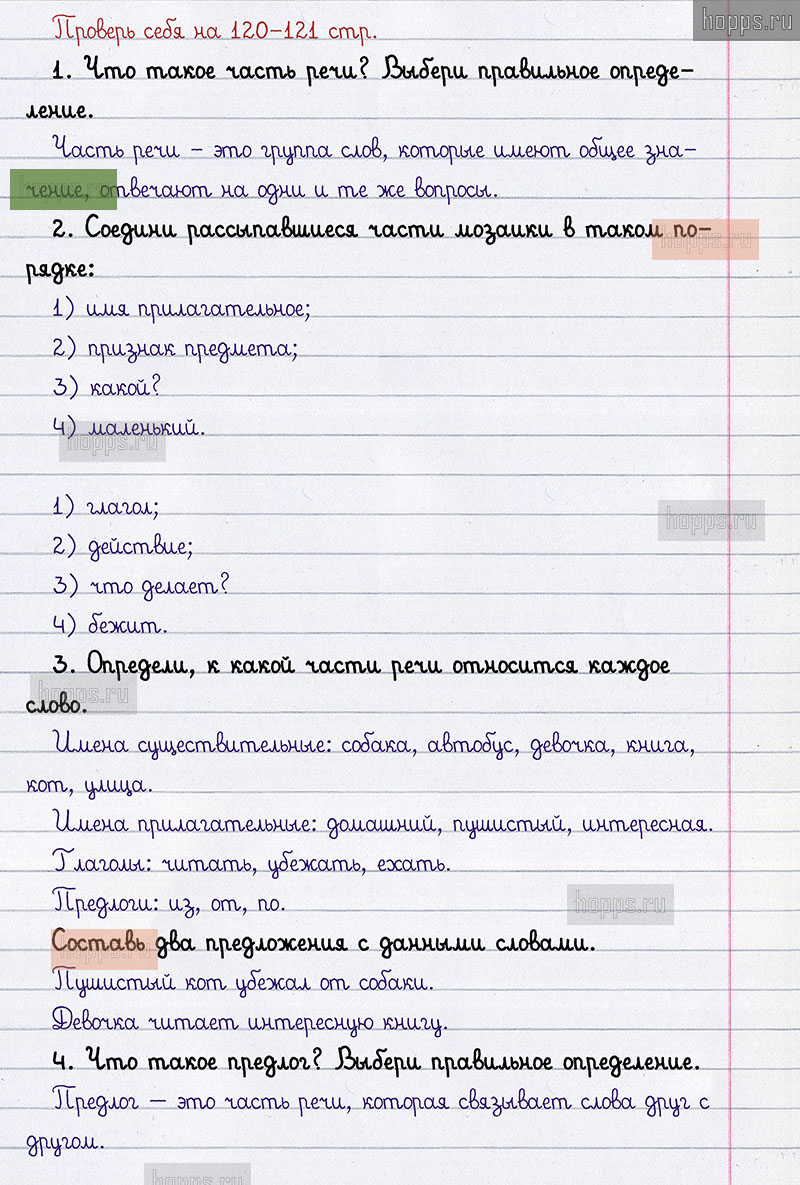 hopps.ru
Проверь себя на 120-121 стр.
1. Что такое часть речи? Выбери правильное опреде-
ление.
Часть речи – это группа слов, которые имеют общее зна-
чение, отвечают на одни и те же вопросы.
2. Соедини рассыпавшиеся части мозаики в таком по-
hopps.ru
рядке:
1) имя прилагательное;
2) признак предмета;
3) какой?
4) маленький.
hopps.ru
1) глагол;
hopps.ru
2) действие;
3) что делает?
4) бежит.
3. Определи, к какой части речи относится каждое
hopps.ru
слово.
Имена существительные: собака, автобус, девочка, книга,
кот, улица.
Имена прилагательные: домашний, пушистый, интересная.
Глаголы: читать, убежать, ехать.
Предлоги: из, от, по.
hopps.ru
Составь два предложения с данными словами.
hopps.ru
Пушистый кот убежал от собаки.
Девочка читает интересную книгу.
4. Что такое предлог? Выбери правильное определение.
Предлог — это часть речи, которая связывает слова друг с
другом.
hopps.ru